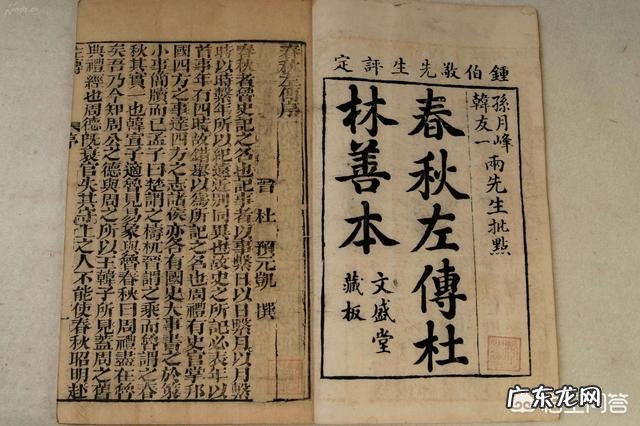 鍾伯敬先生評定
孫月峰
韓友一
兩先生批點
春秋左傳杜
林善本
文盛堂
藏板
春秋左傳序
晉 杜 預元凱 撰
春秋者魯史記之名也記事者以事繫日以日繫月以月繫
時以時繫年所以紀遠近別同異也故史之所記必表年以
首事年有四時故錯舉以為所記之名也周禮有史官掌邦
國四方之事達四方之志諸侯亦各有國史大事書之於策
小事簡牘而已孟子曰楚謂之檮杌晉謂之乘而魯謂之春
秋其實一也韓宣子適魯見易象與魯春秋曰周禮盡在魯
矣吾乃今知周公之德與周之所以王韓子所見蓋周之舊
典禮經也周德既衰官失其守上之人不能使春秋昭明赴
序
广东龙网